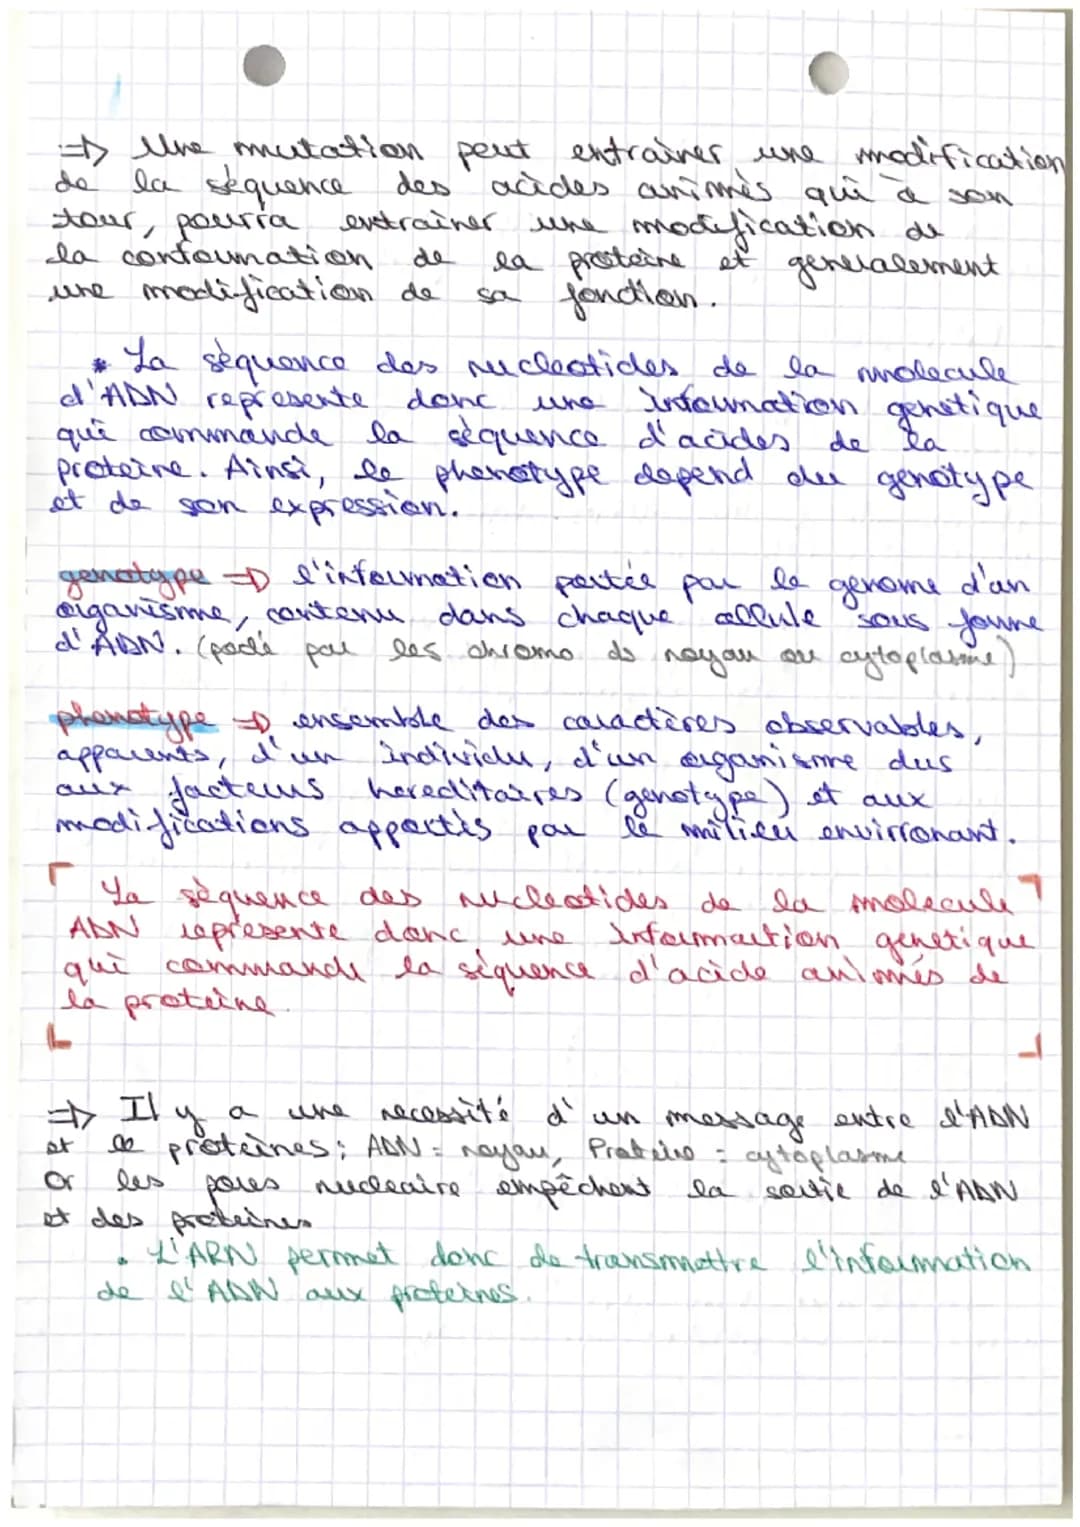 => Une mutation peut entrainer une modification
de la séquence des acides animés qui à son
tour, pourra entrainer une modification de
la conformation de la protéine et generalement
une modification de sa fonction.
* La séquence des nucleotides de la molecule
d'ADN represente donc une information genetique
qui commande la séquence d'acides de la
proteine. Ainsi, le phenotype depend du genotype
et de son expression.
genotype => l'information portée par le genome d'un
organisme, contenu dans chaque cellule sous forme
d'ADN. (parlé par les chromo do noyau ou cytoplasme)
phenotype => ensemble des caractères observables,
apparents, d'un individu, d'un organisme dus
aux facteurs hereditaires (genotype) et aux
modifications apportés par le milieu envirronant.
La séquence des nucleotides de la molecule
ADN represente donc une information genetique
qui commande la séquence d'acide animés de
la proteine.
=> Il y a une necessité d'un message entre l'ADN
et le protéines; ADN = noyau, Proteine = cytoplasme
Or les pores nucleaire empêchent la sortie de l'ADN
et des proteines
• L'ARN permet donc de transmettre l'information
de l'ADN aux proteines.